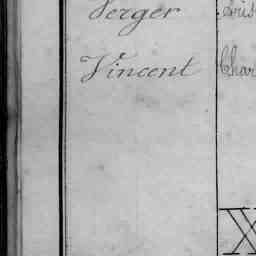 Verger
Vincent Char
X